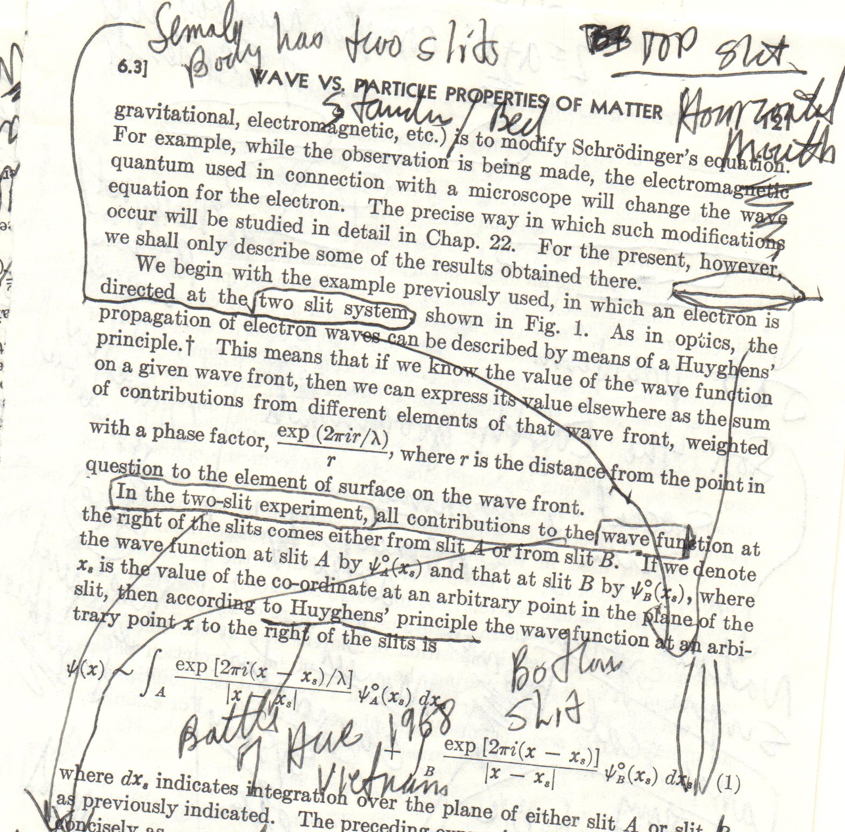 Body has two slits
TOP Slit
6.3] WAVE VS. PARTICLE PROPERTIES OF MATTER 121
Horizontal
Mouth
Bed
gravitational, electromagnetic, etc.) is to modify Schrödinger's equation.
For example, while the observation is being made, the electromagnetic
quantum used in connection with a microscope will change the wave
equation for the electron. The precise way in which such modifications
occur will be studied in detail in Chap. 22. For the present, however,
we shall only describe some of the results obtained there.
We begin with the example previously used, in which an electron is
directed at the two slit system, shown in Fig. 1. As in optics, the
propagation of electron waves can be described by means of a Huyghens'
principle.† This means that if we know the value of the wave function
on a given wave front, then we can express its value elsewhere as the sum
of contributions from different elements of that wave front, weighted
with a phase factor, exp (2πir/λ) / r, where r is the distance from the point in
question to the element of surface on the wave front.
In the two-slit experiment, all contributions to the wave function at
the right of the slits comes either from slit A or from slit B. If we denote
the wave function at slit A by ψ°A(xs) and that at slit B by ψ°B(xs), where
xs is the value of the co-ordinate at an arbitrary point in the plane of the
slit, then according to Huyghens' principle the wave function at an arbi-
trary point x to the right of the slits is
ψ(x) ~ ∫A exp [2πi(x − xs)/λ] / |x − xs| ψ°A(xs) dxs
Bottom
Slit
Battle 1968
of Hue
Vietnam
+ ∫B exp [2πi(x − xs)] / |x − xs| ψ°B(xs) dxs (1)
where dxs indicates integration over the plane of either slit A or slit B,
as previously indicated. The preceding
concisely as